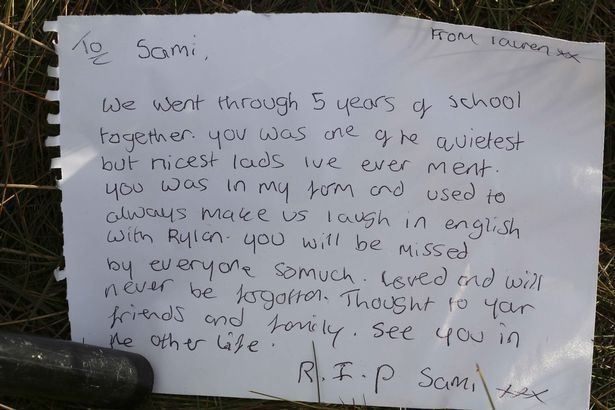 To Sami,
From Lauren xx
We went through 5 years of school
together. you was one of the quietest
but nicest lads ive ever ment.
you was in my form and used to
always make us laugh in english
with Rylan. you will be missed
by everyone somuch. Loved and will
never be forgotton. Thought to your
friends and family. see you in
the other life.
R.I.P Sami xxx